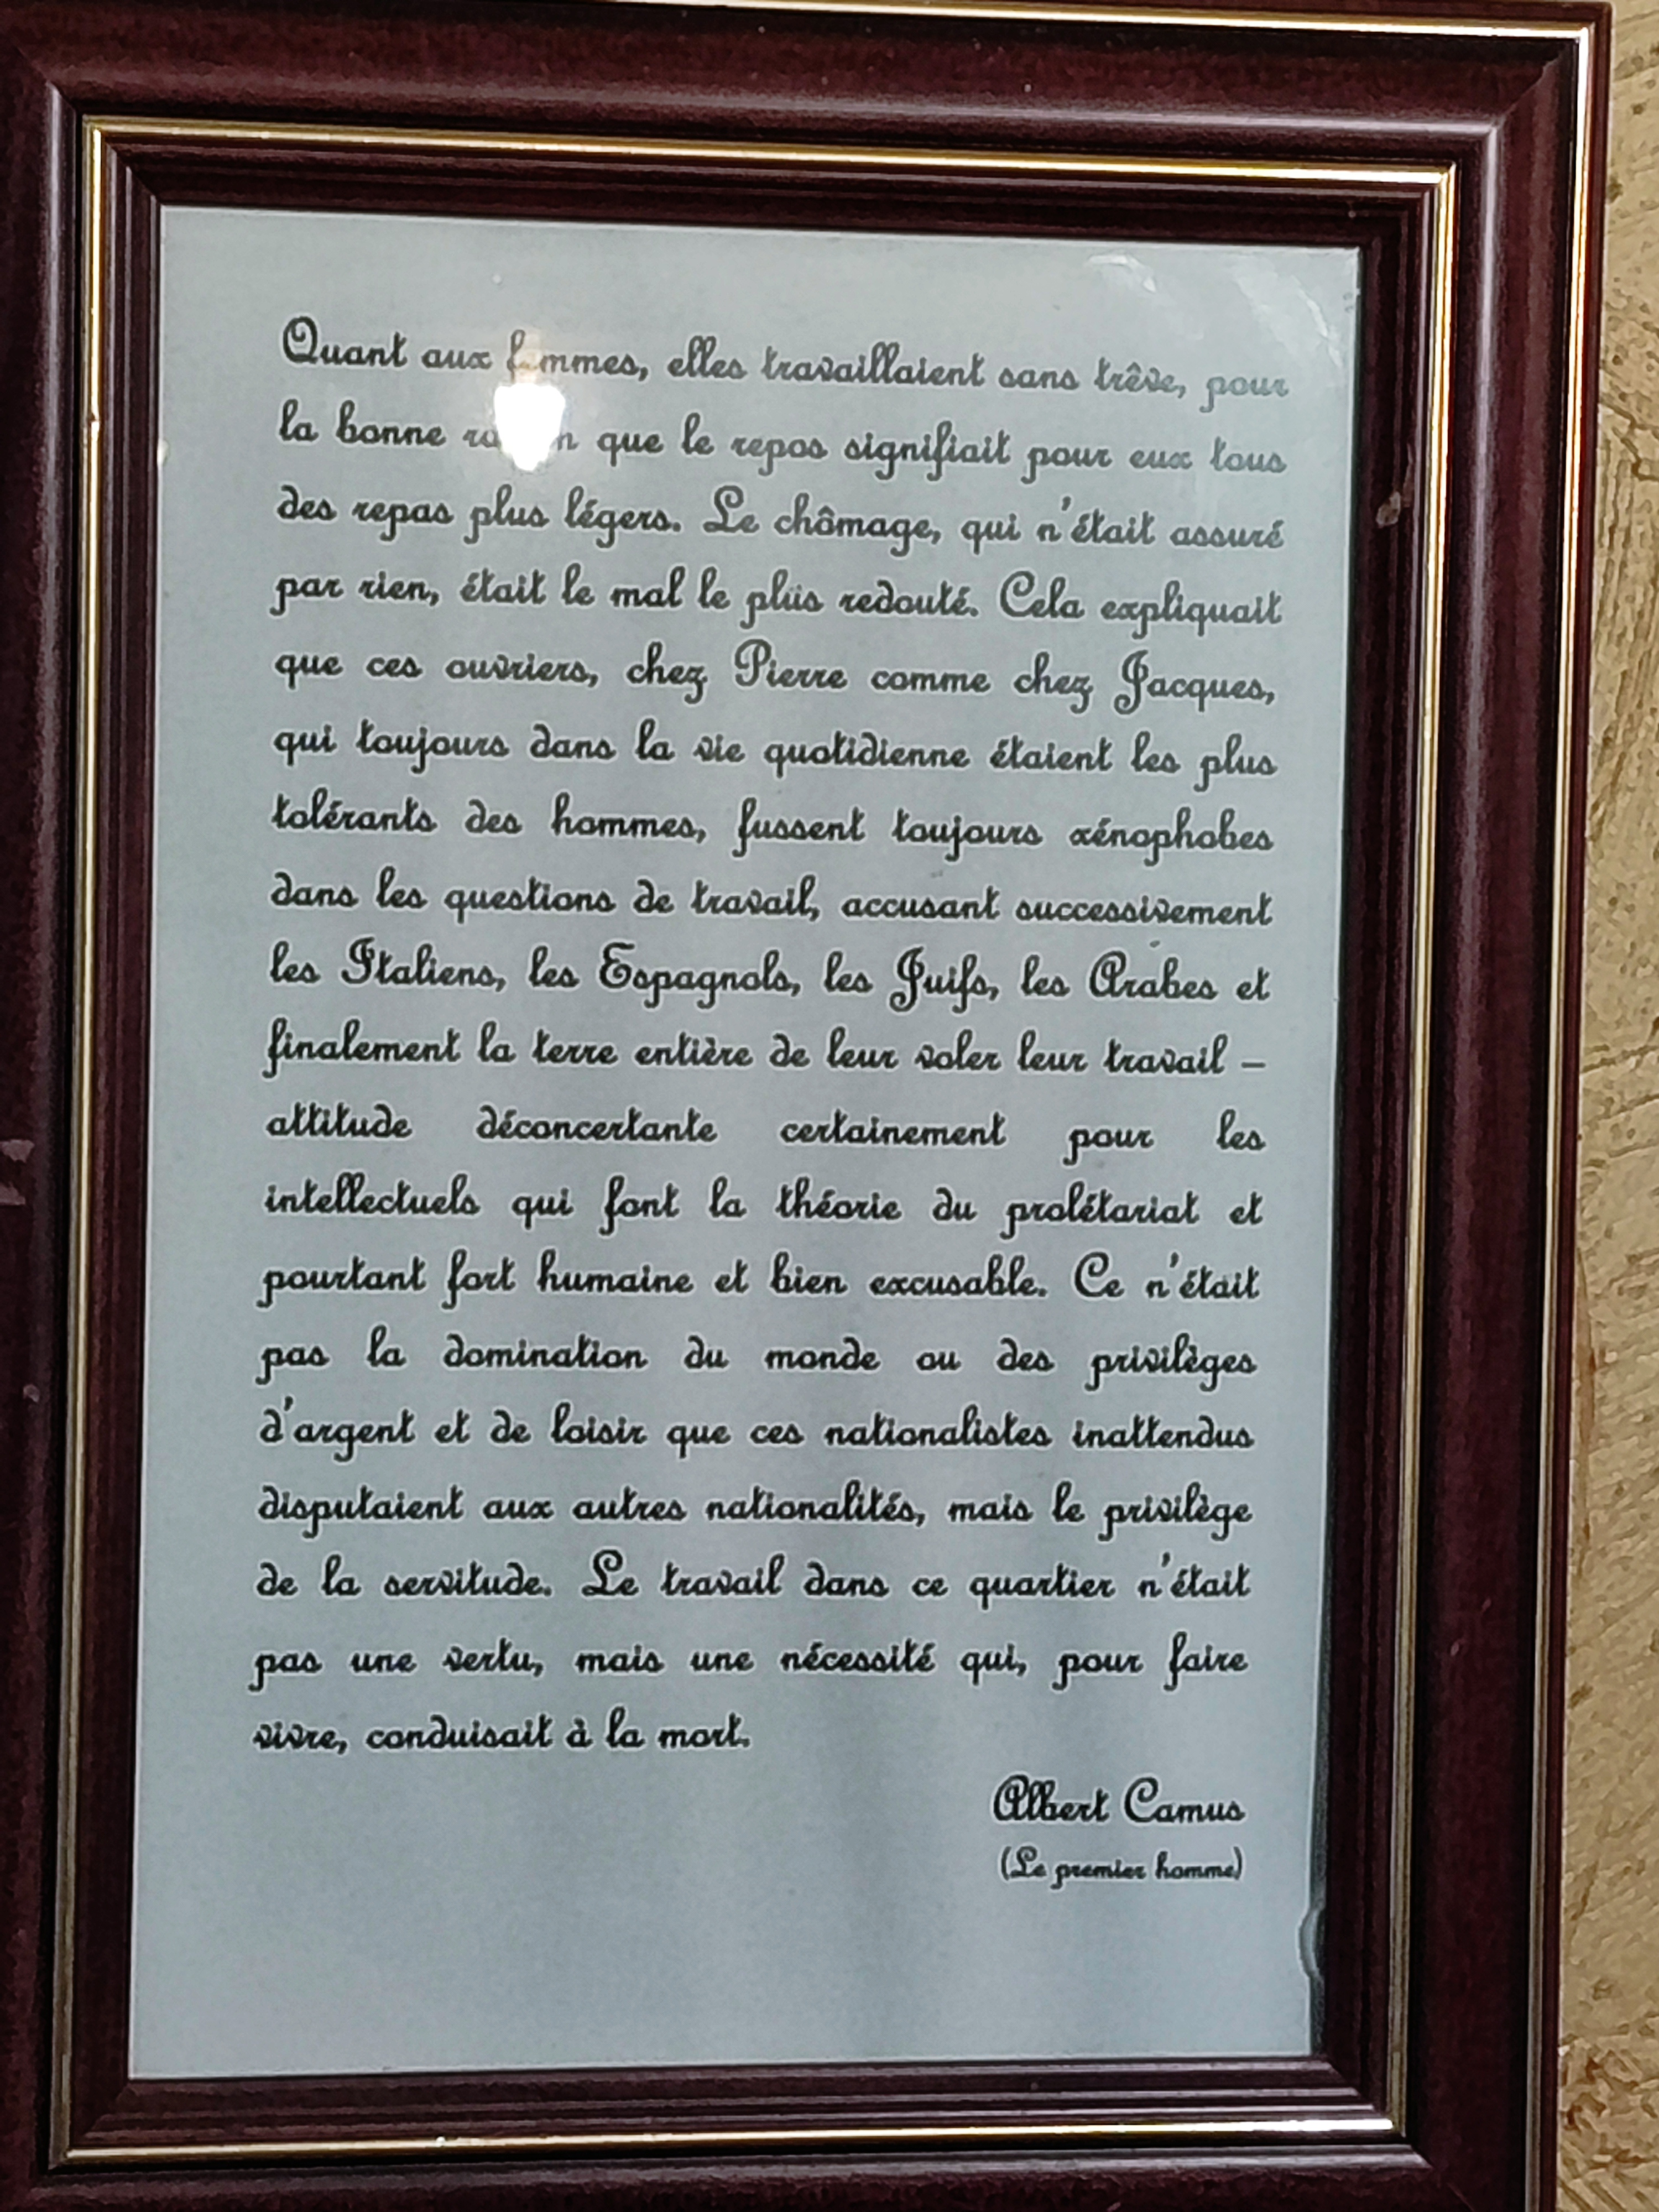 Quant aux femmes, elles travaillaient sans trêve, pour
la bonne raison que le repos signifiait pour eux tous
des repas plus légers. Le chômage, qui n'était assuré
par rien, était le mal le plus redouté. Cela expliquait
que ces ouvriers, chez Pierre comme chez Jacques,
qui toujours dans la vie quotidienne étaient les plus
tolérants des hommes, fussent toujours xénophobes
dans les questions de travail, accusant successivement
les Italiens, les Espagnols, les Juifs, les Arabes et
finalement la terre entière de leur voler leur travail –
attitude déconcertante certainement pour les
intellectuels qui font la théorie du prolétariat et
pourtant fort humaine et bien excusable. Ce n'était
pas la domination du monde ou des privilèges
d'argent et de loisir que ces nationalistes inattendus
disputaient aux autres nationalités, mais le privilège
de la servitude. Le travail dans ce quartier n'était
pas une vertu, mais une nécessité qui, pour faire
vivre, conduisait à la mort.
Albert Camus
(Le premier homme)